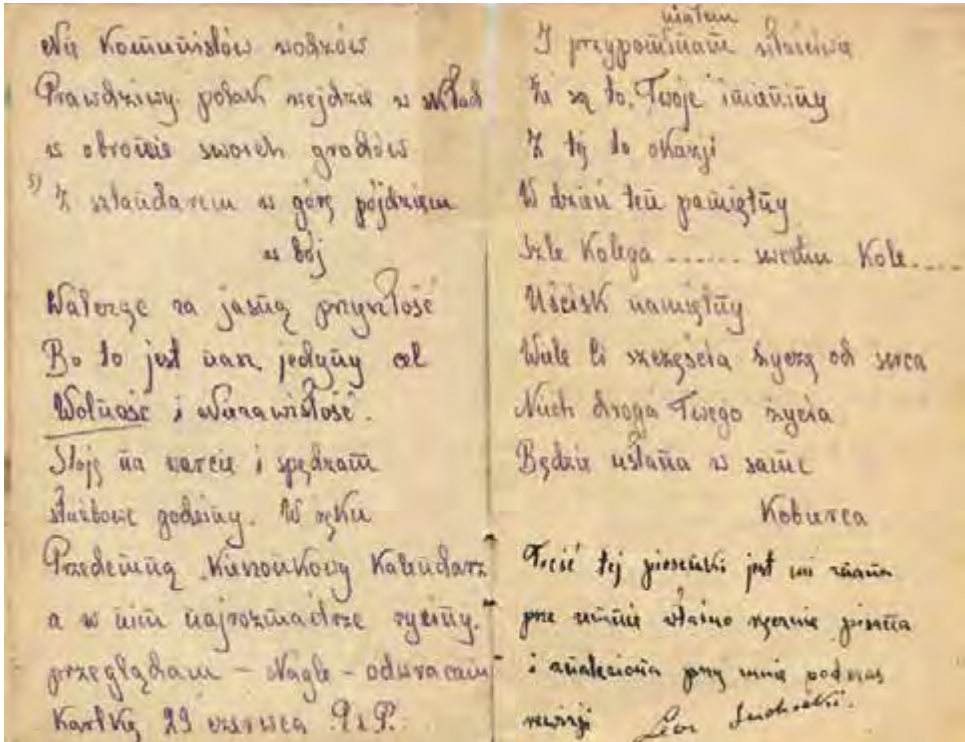 Nie Komunistów wodzów
Prawdziwy polak wejdzie w skład
w obronie swoich grodów
5) Z sztandarem w górę pójdziem
w bój
Walcząc za jasną przyszłość
Bo to jest nasz jedyny cel
Wolność i Niezawisłość.
Stoję na warcie i spędzam
służbowe godziny. W ręku
Przedemną Kieszonkowy Kalendarz
a w nim najrozmaitsze ryciny.
przeglądam – Nagle – odwracam
Kartkę 29 czerwca P. i P.:
I przypominam właściwie
Że są to, Twoje imieniny
Z tej to okazji
W dzień ten pamiętny
Szle Kolega ...... swemu Kole.....
Uścisk namiętny
Wiele Ci szczęścia życzę od serca
Niech droga Twego życia
Będzie usłana w same
Kobierca
Treść tej piosenki jest mi znana
prze zemnie własno ręcznie pisana
i znaleziona przy mnie podczas
rewizji